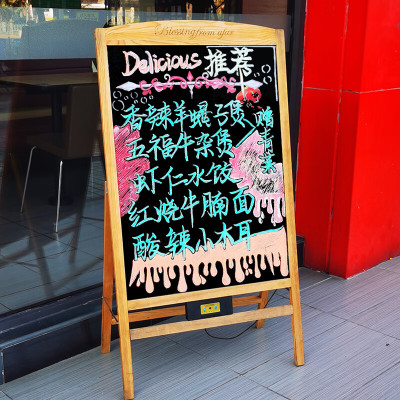 Blessing from afar
Delicious 推荐
香辣羊蝎子煲
五福牛杂煲
赠青菜
虾仁水饺
红烧牛腩面
酸辣小木耳